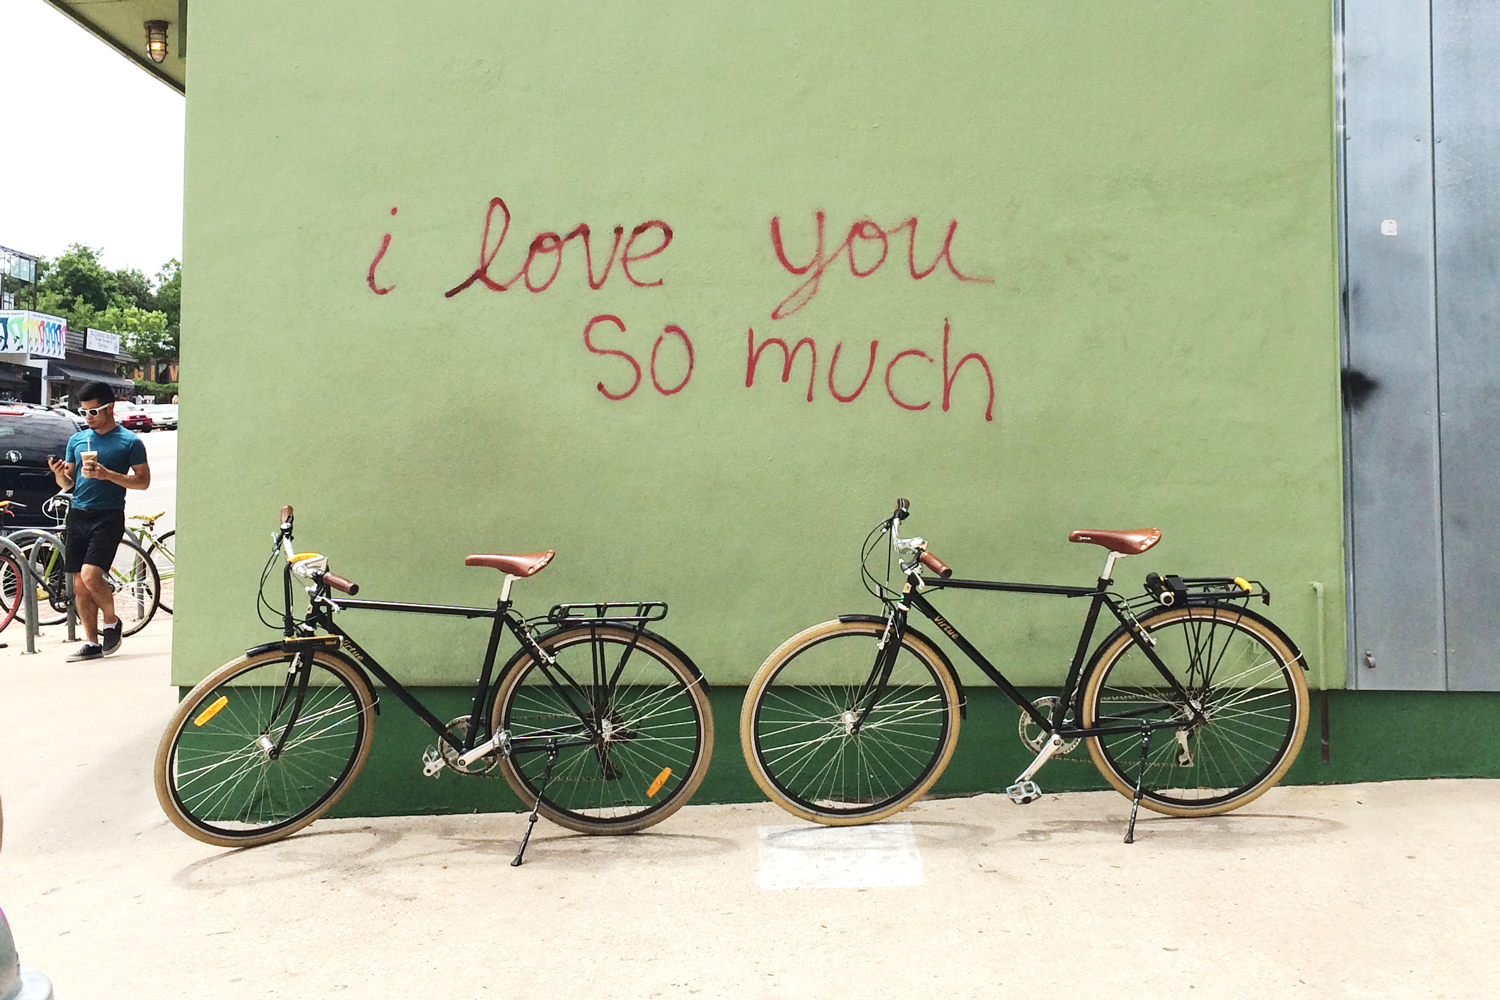 i love you
so much
Virtue
Virtue